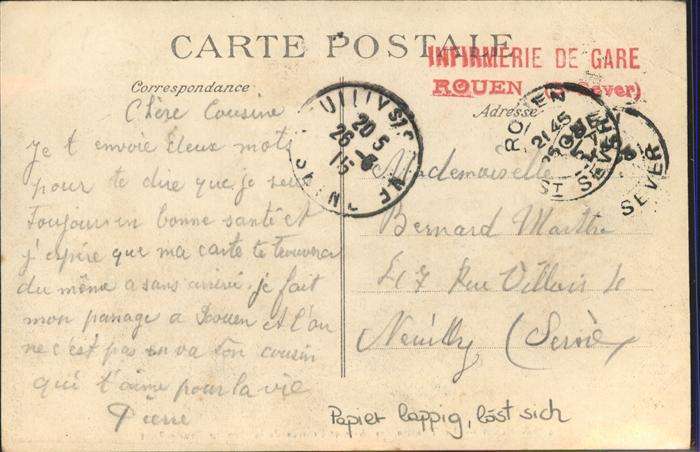 CARTE POSTALE
INFIRMERIE DE GARE
ROUEN (St Sever)
Correspondance
Adresse
Chère Cousine
Je t envoie deux mots
pour te dire que je suis
Toujours en bonne santé et
j'espère que ma carte te trouvera
du même a sans arrivé. je fait
mon passage a Rouen et l'on
ne c'est pas va ton cousin
qui t'aime pour la vie
Pierre
Mademoiselle
Bernard Marthe
47 Rue Villiers
Neuilly (Seine)
UILLY S/S
20 5
26
15
SEINE
ROUEN
21 45
25
ST SEVER
SEVER
Papier lappig, löst sich